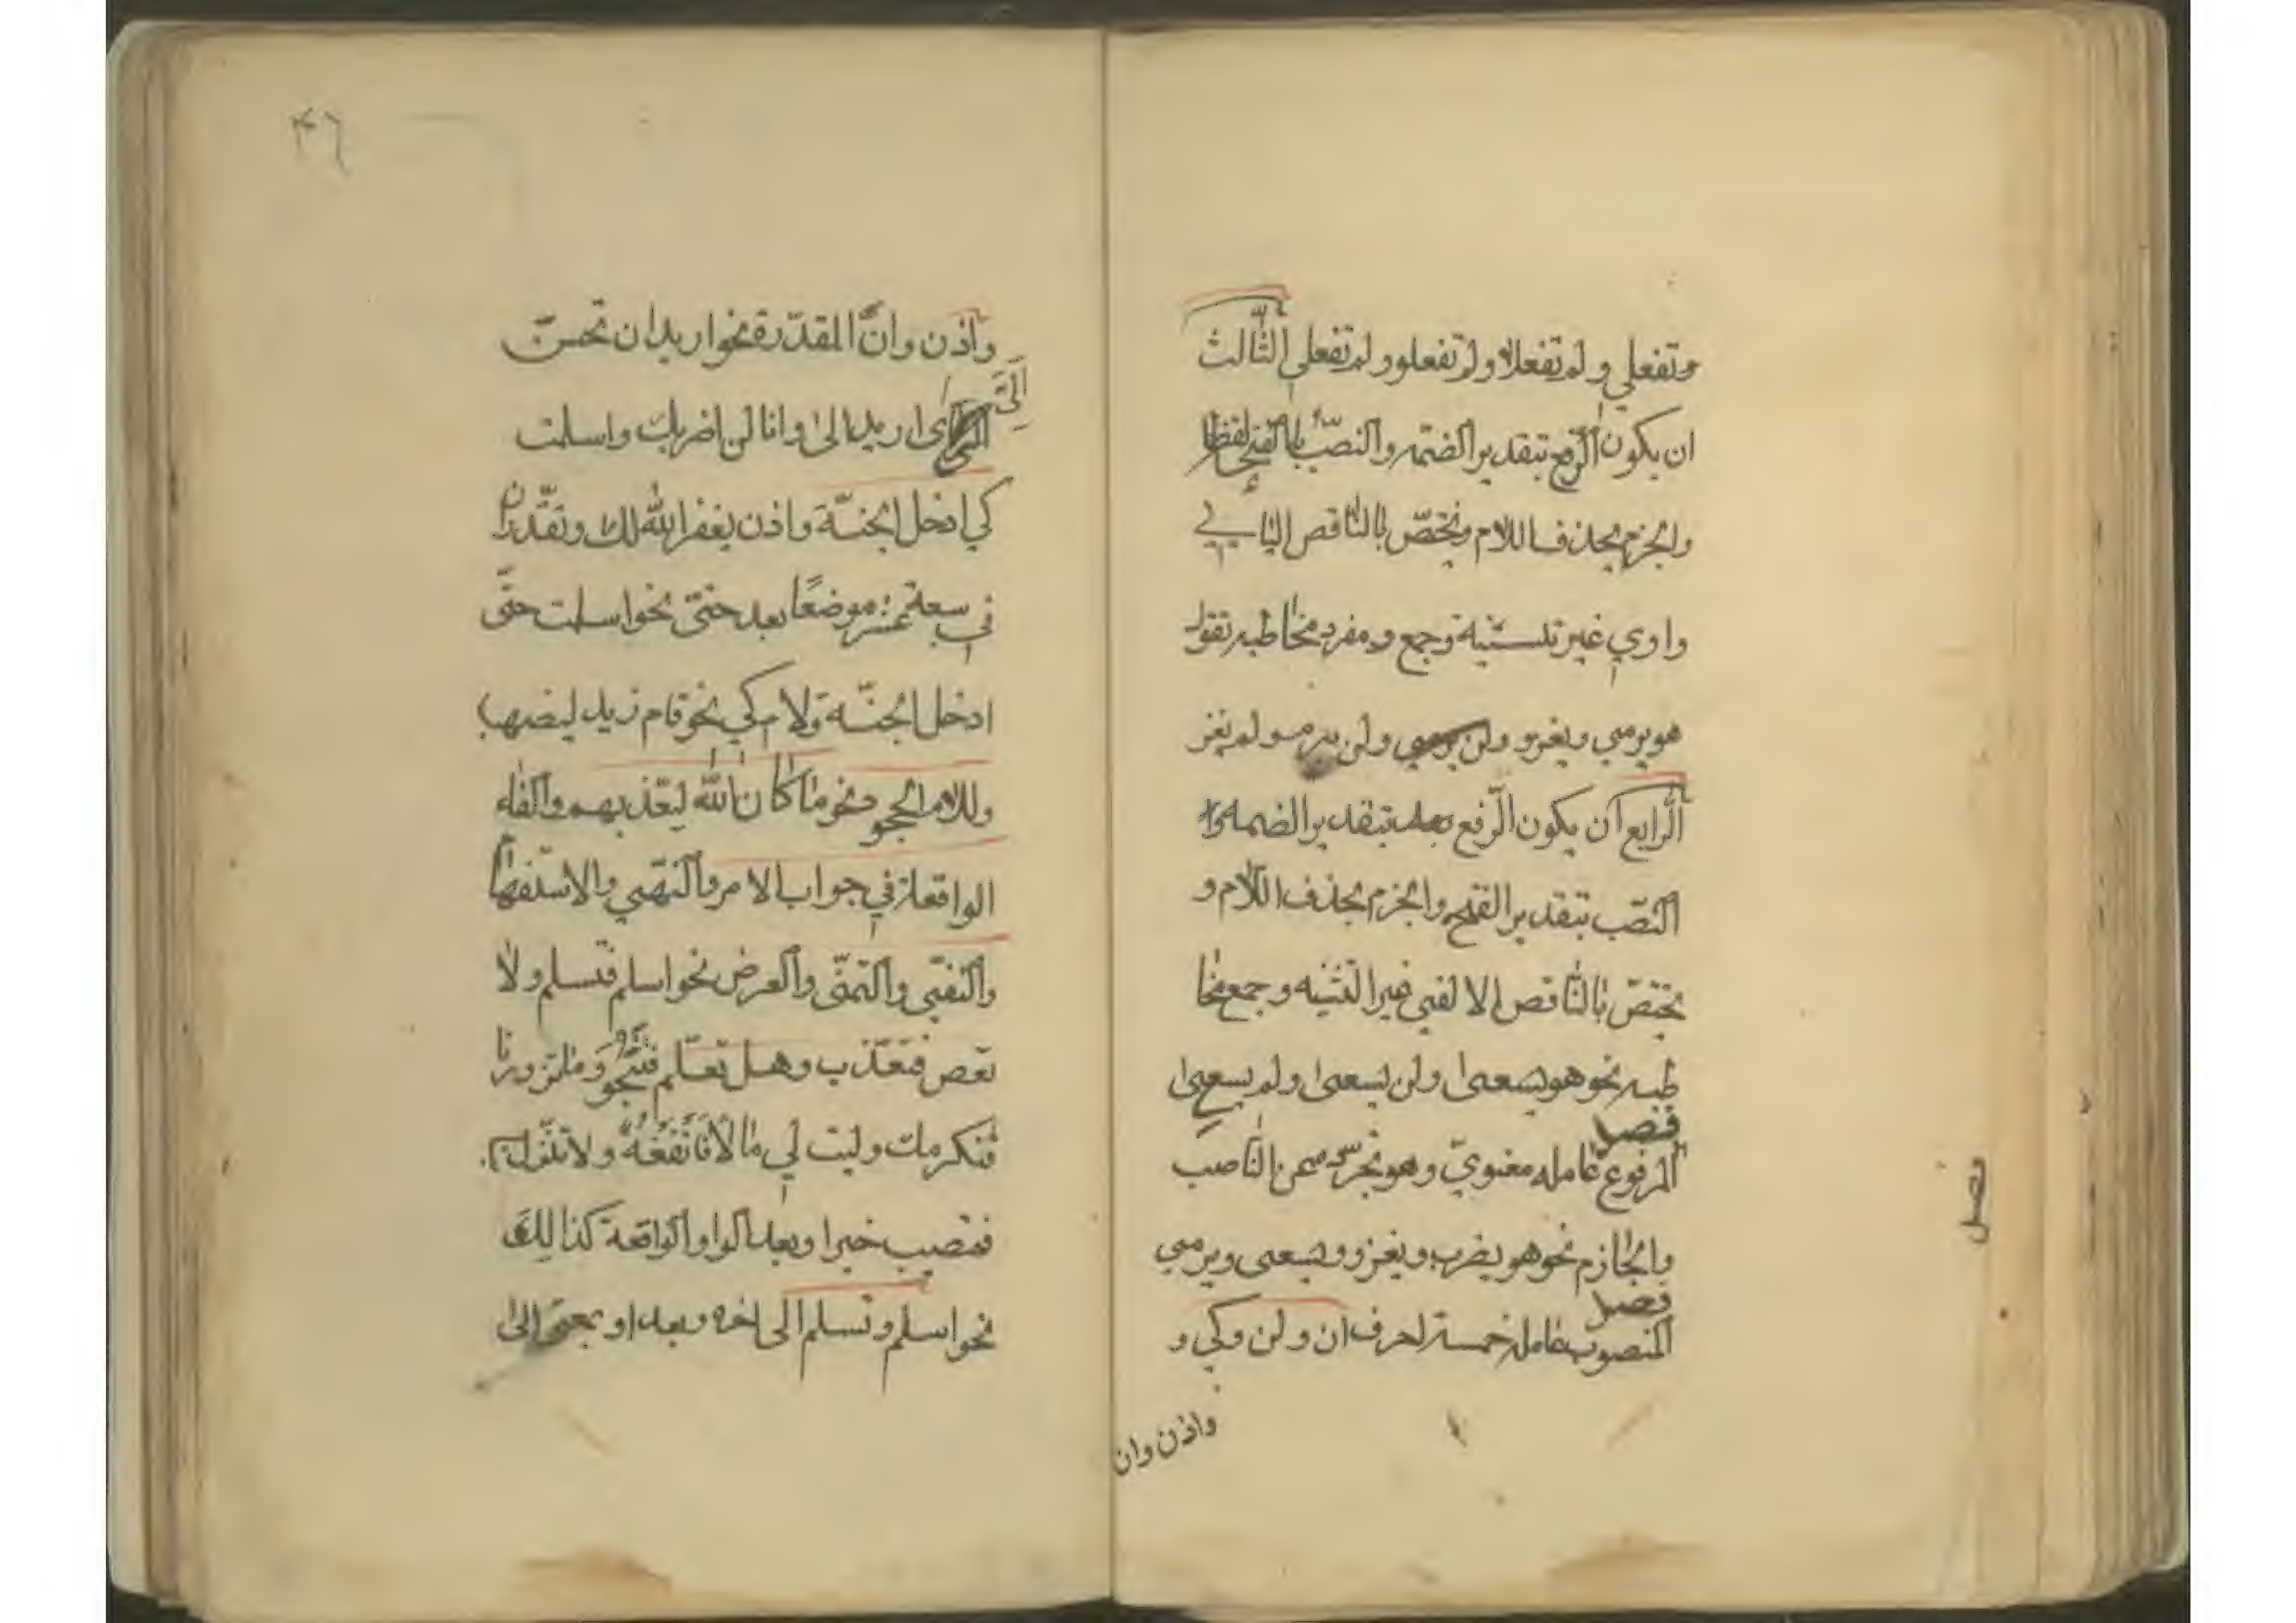 وتفعلي ولم تفعلا ولم تفعلوا ولم تفعلي الثّالث
ان يكون الرّفع بتقدير الضّمه والنصّب بالفتح لفظا
والجزم بحذف اللام وتختصّ بالنّاقص اليايي
واوي غير تثنية وجمع ومفرد مخاطبه تقول
هو يرمي ويغزو ولن يرمي ولن يرم ولم يغز
الرّابع ان يكون الرّفع بتقدير الضمه و
النصّب بتقدير الفتح والجزم بحذف اللّام و
يختصّ بالنّاقص الالفي غير التثنيه وجمع مخا
طبه نحو هو يسعى ولن يسعى ولم يسع
فصل
المرفوع عامله معنويّ وهو تجرّده عن النّاصب
والجازم نحو هو يضرب ويغزو ويسعى ويرمي
فصل
المنصوب عامله خمسة احرف ان ولن وكي و
واذن وان
فصل
٤٦
واذن وان المقدّرة نحو اريد ان تحسن
الَيَّ
اي اريد الى وانا لن اضربك واسلمت
كي ادخل الجنّة واذن يغفر الله لك وتقّدر ان
في سبعة عشر موضعًا بعد حتّى نحو اسلمت حتّى
ادخل الجنّة ولام كي نحو قام زيد ليضرب
وللام الجحود نحو ما كان الله ليعّذبهم والفاء
الواقعة في جواب الامر والنّهي والاستفهام
والنّفي والتّمنّى والعرض نحو اسلم فتسلم ولا
تعص فتعّذب وهل تعلم فتنجو وما تزورنا
فنكرمك وليت لي مالا فانفقه ولا تنزل بنا
فتصيب خيرا وبعد الواو الواقعة كذالك
نحو اسلم وتسلم الى اخره وبعد او بمعنى الى